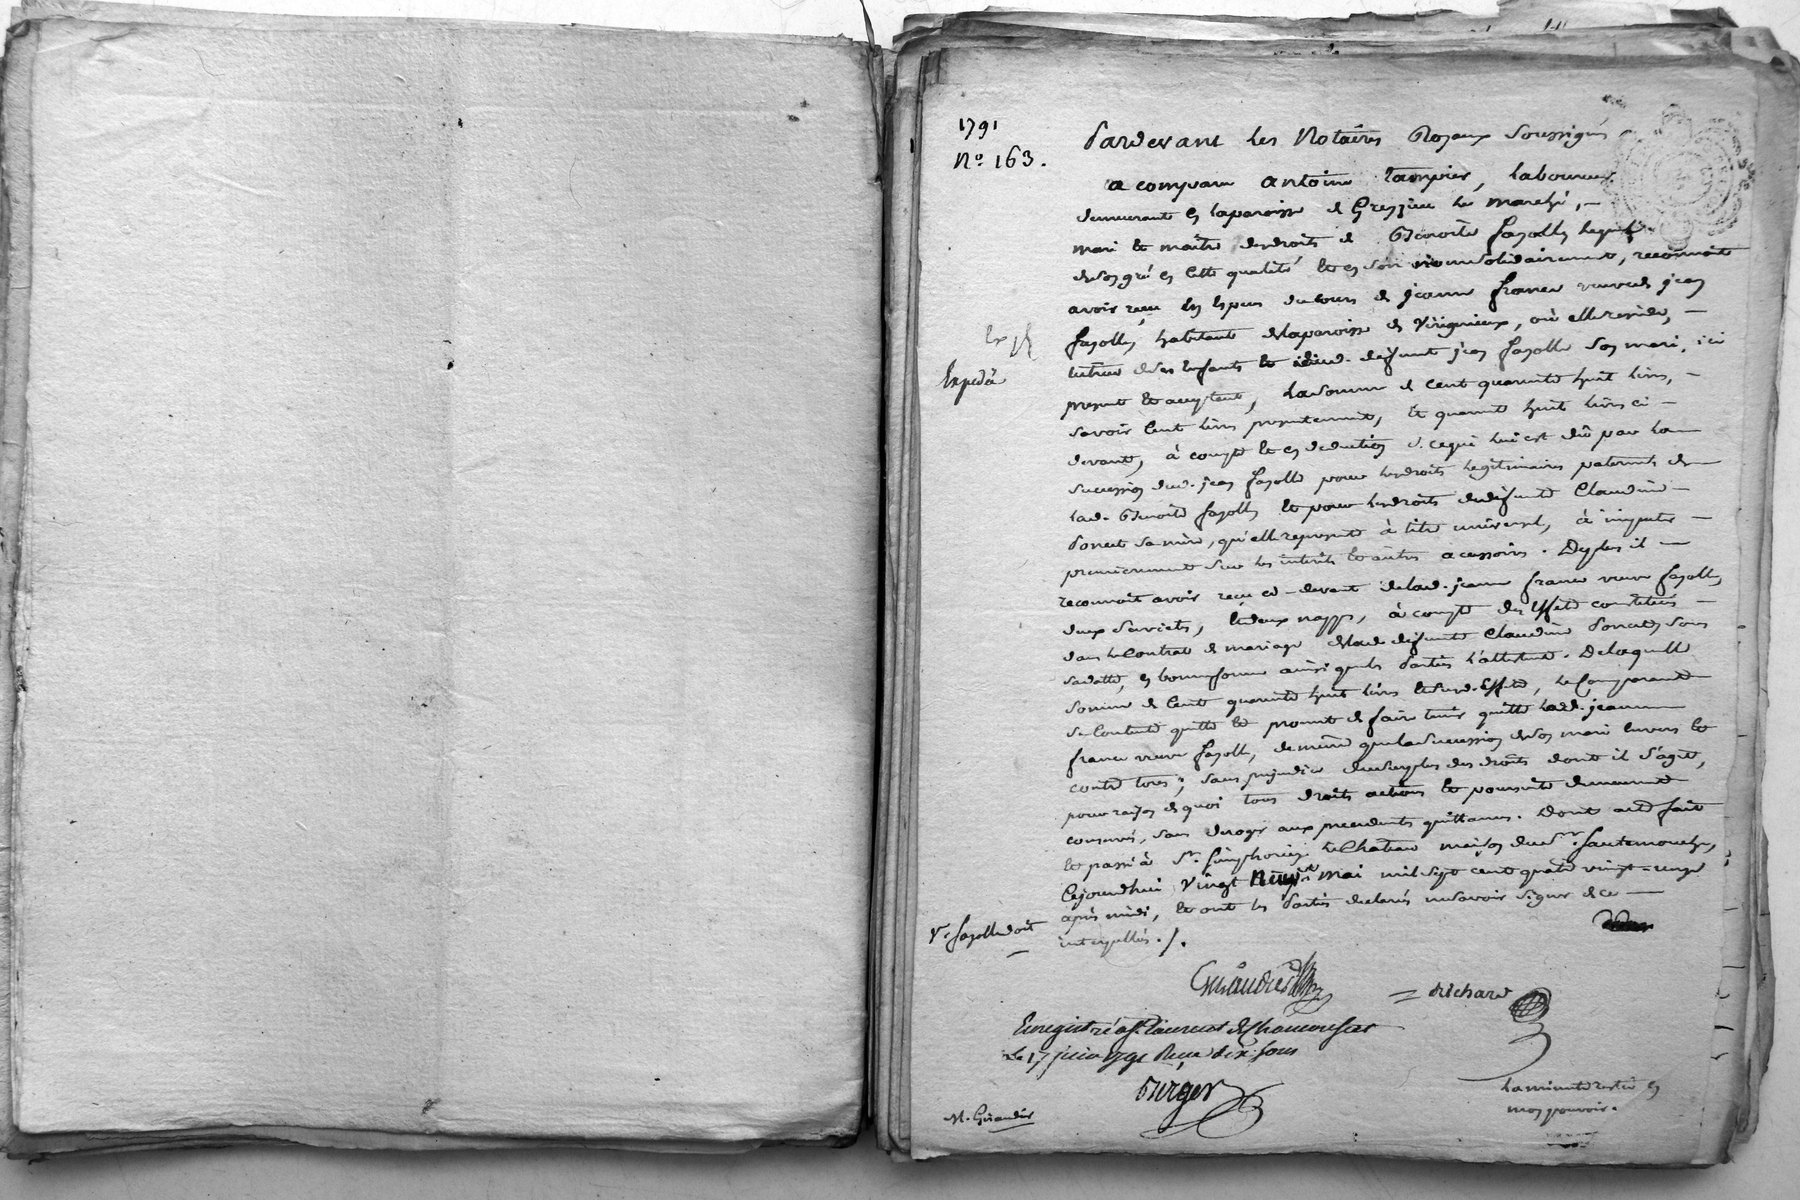 1791
N.º 163.
Pardevant les Notaires Royaux Soussignés
a comparu antoine tampier, laboureur
demeurant en laparoisse de Grezieu le marché, —
mari et maitre desdroits de Benoite fayolle lequel
deson gré en cette qualité et en son solidairement, reconnoit
avoir reçu en espèces decours de jeanne france veuve de jean
fayolle, habitante delaparoisse de Virigneux, où elle reside, —
tutrice deses enfants et dud. deffunt jean fayolle son mari, ici
presente et acceptante, lasomme de cent quarante huit livres, —
savoir cent livres presentement, et quarante huit livres ci —
devant, à compte et en deduction de cequi lui est dû par la —
succession dud. jean fayolle pour lesdroits legitimaires paternels de —
lad. Benoite fayolle et pour lesdroits dedeffunte Claudine —
Poncet samère, qu'elle represente à titre universel, à imputer —
premierement sur les interets et autres accessoires. Deplus il —
reconnoit avoir reçu ci-devant delad. jeanne france veuve fayolle,
deux serviets, et deux nappes, à compte des effets constitués —
dans le Contrat de mariage delad. deffunte Claudine Poncet, sous
sadatte, en bonne forme ainsi queles Parties l'attestent. Delaquelle
somme de cent quarante huit livres et desd. effets, le Comparant
se contente quitte et promet de faire tenir quitte lad. jeanne
france veuve fayolle, demême que la succession deson mari envers et
contre tous; sans prejudice dusurplus des droits dont il s'agit,
pour raison de quoi tous droits actions et poursuite demeurent
conservés, sans deroger aux precedentes quittances. Dont acte fait
et passé à St. Simphorien le Chateau maison du Sr. fautemouche,
Cejourdhui vingt neuf mai mil sept cent quatre vingt-onze
après midi, et ont les Parties declaré nesavoir signer de ce —
interpellés./.
Expédié
Ve. fayolle doit
Richard
Enregistré à St. laurent de Chamousset
Le 17 juin 1791 Reçu dix sous
Burger
M. Giraudier
la minute restée en
mon pouvoir.